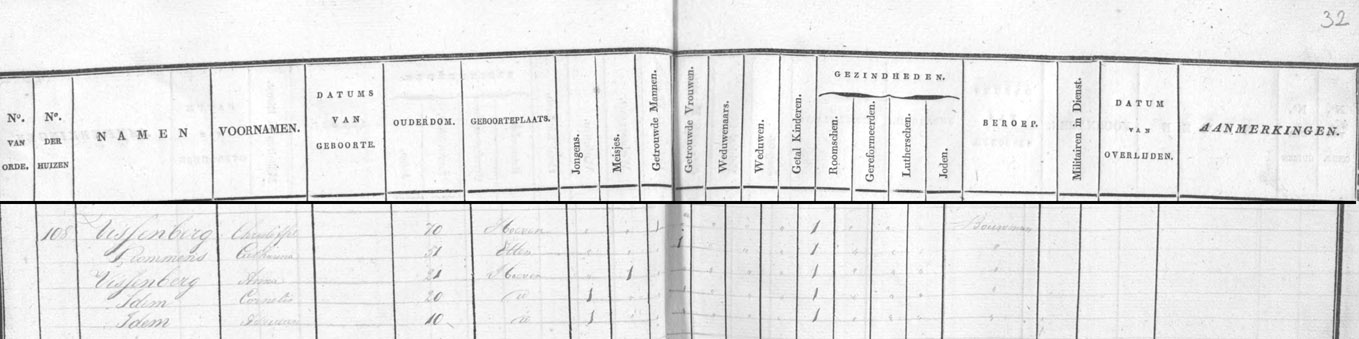 32
Nº. VAN ORDE. Nº. DER HUIZEN NAMEN VOORNAMEN. DATUMS VAN GEBOORTE. OUDERDOM. GEBOORTEPLAATS. Jongens. Meisjes. Getrouwde Mannen. Getrouwde Vrouwen. Weduwenaars. Weduwen. Getal Kinderen. GEZINDHEDEN. Roomschen. Gereformeerden. Lutherschen. Joden. BEROEP. Militairen in Dienst. DATUM VAN OVERLIJDEN. AANMERKINGEN.
108 Vissenberg 70 Hoeven 1 1
51 Etten 1 1
Vissenberg Anna 21 Hoeven 1 1
Idem Cornelis 20 id 1 1
Idem 10 id 1 1